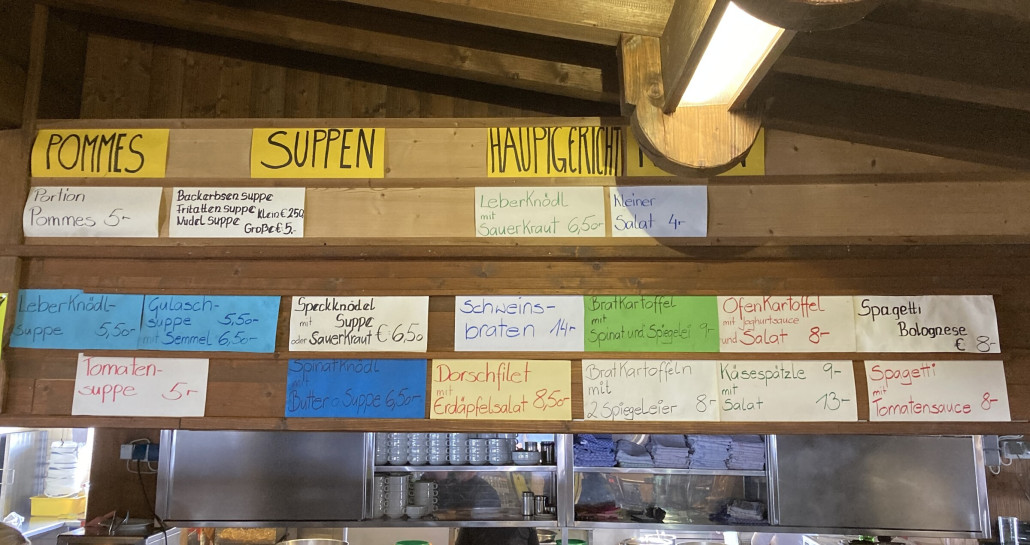 POMMES
SUPPEN
HAUPTGERICHT
Portion
Pommes 5,-
Backerbsensuppe
Frittatensuppe
Nudelsuppe
Klein € 2,50
Große € 5,-
LeberKnödl
mit
SauerKraut 6,50-
Kleiner
Salat 4,-
LeberKnödl-
suppe 5,50-
Gulasch-
suppe 5,50-
mit Semmel 6,50-
Speckknödel
mit Suppe
oder SauerKraut € 6,50
Schweins-
braten 14,-
BratKartoffel
mit
Spinat und Spiegelei 9,-
OfenKartoffel
mit Joghurtsauce
und Salat 8,-
Spagetti
Bolognese
€ 8,-
Tomaten-
suppe 5,-
SpinatKnödl
mit
Butter o Suppe 6,50-
Dorschfilet
mit
Erdäpfelsalat 8,50-
BratKartoffeln
mit
2 Spiegeleier 8,-
Käsespätzle 9,-
mit
Salat 13,-
Spagetti
mit
Tomatensauce 8,-